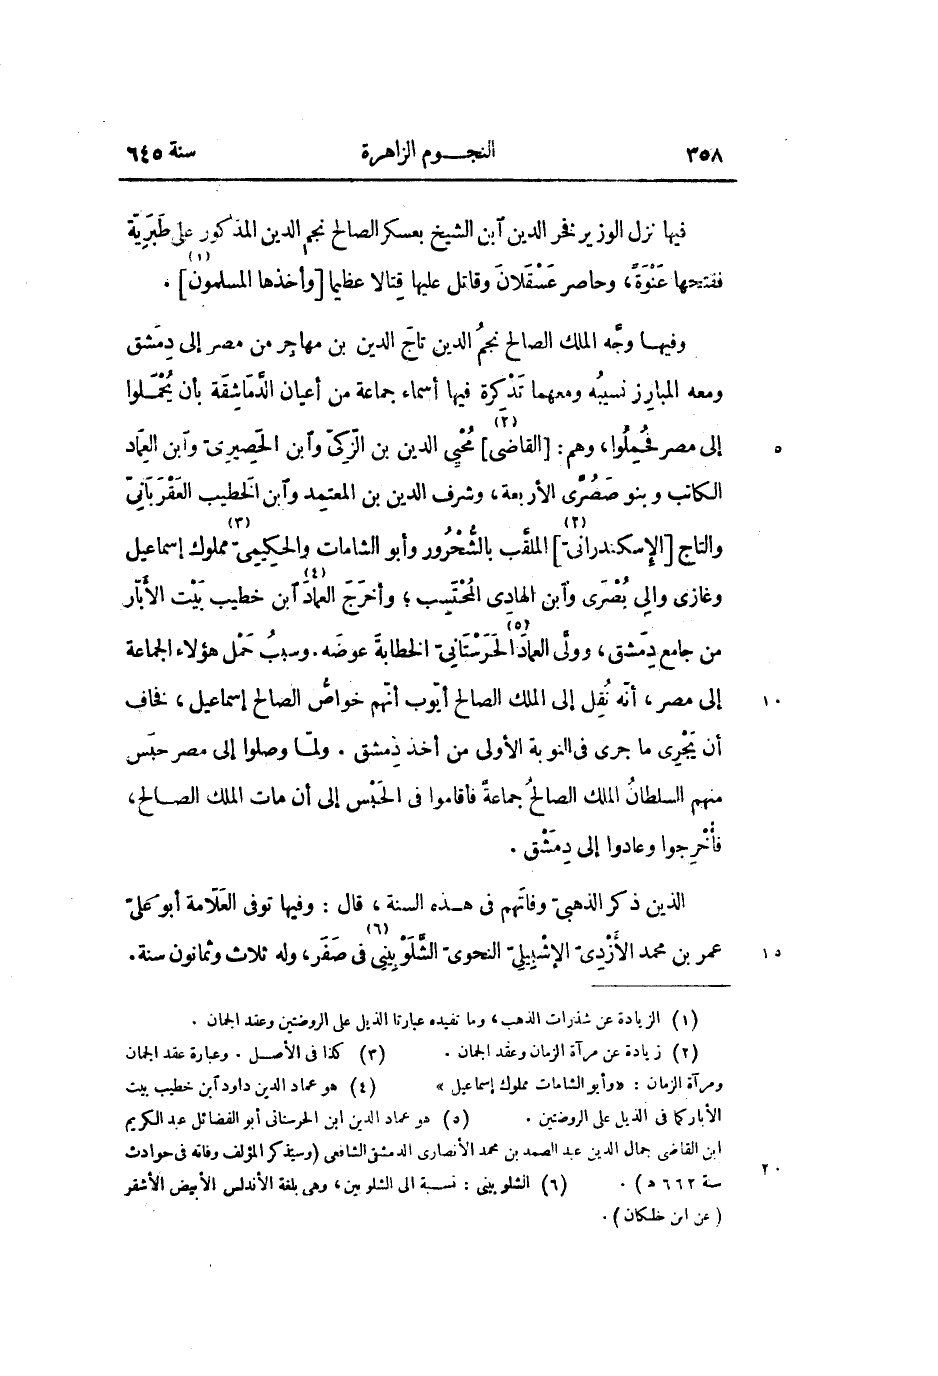 ٣٥٨ النجوم الزاهرة سنة ٦٤٥
فيها نزل الوزير فخر الدين آبن الشيخ بعسكر الصالح نجم الدين المذكور على طَبَرِيّة
ففتحها عَنْوَةً، وحاصر عَسْقَلان وقاتل عليها قِتالا عظيما [وأخذها المسلمون](١) .
وفيها وجَّه الملك الصالح نجمُ الدين تاجَ الدين بن مهاجر من مصر إلى دِمَشق
ومعه المبارِز نسيبُه ومعهما تَذْكِرة فيها أسماء جماعة من أعيان الدَّماشِقَة بأن يُحْمَلوا
٥ إلى مصر فحُمِلُوا، وهم: [القاضى](٢) مُحْيِي الدين بن الزّكىّ وآبن الحَصِيرىّ وآبن العِماد
الكاتب وبنو صَصْرَى الأربعة، وشرف الدين بن المعتمد وآبن الخطيب العَقْرَبَانىّ
والتاج [الإسكندرانىّ](٢) الملقَّب بالشُّحْرُور وأبو الشامات والحكيمىّ(٣) مملوك إسماعيل
وغازى والِى بُصْرَى وآبن الهادِى المُحْتَسِب؛ وأخرَجَ العِمادَ(٤) آبن خطيب بَيْت الأَبّار
من جامع دِمَشق، وولَّى العمادَ الحَرَسْتَانِىّ(٥) الخطابةَ عوضَه. وسببُ حَمْل هؤلاء الجماعة
١٠ إلى مصر، أنّه نُقِل إلى الملك الصالح أيّوب أنّهم خواصُّ الصالح إسماعيل، فخاف
أن يَجْرِى ما جرى فى النوبة الأولى من أخذ دِمشق . ولمّا وصلوا إلى مصر حبَس
منهم السلطانُ الملك الصالحُ جماعةً فأقاموا فى الحَبْس إلى أن مات الملك الصالح،
فأُخْرِجوا وعادوا إلى دِمَشْق .
الذين ذكر الذهبىّ وفاتَهم فى هذه السنة، قال : وفيها توفى العَلّامة أبو علىّ
١٥ عمر بن محمد الأَزْدِىّ الإشْبِيلىّ النحوىّ الشَّلَوْبِينِى(٦) فى صَفَر، وله ثلاث وثمانون سنة.
(١) الزيادة عن شذرات الذهب، وما تفيده عبارتا الذيل على الروضتين وعقد الجمان .
(٢) زيادة عن مرآة الزمان وعقد الجمان . (٣) كذا فى الأصل . وعبارة عقد الجمان
ومرآة الزمان : «وأبو الشامات مملوك إسماعيل » (٤) هو عماد الدين داود آبن خطيب بيت
الأبار كما فى الذيل على الروضتين . (٥) هو عماد الدين ابن الحرستانى أبو الفضائل عبد الكريم
ابن القاضى جمال الدين عبد الصمد بن محمد الأنصارى الدمشقى الشافعى (وسيذكر المؤلف وفاته فى حوادث
٢٠ سنة ٦٦٢ ه) . (٦) الشلوبينى : نسبة الى الشلوبين، وهى بلغة الأندلس الأبيض الأشقر
(عن ابن خلكان) .